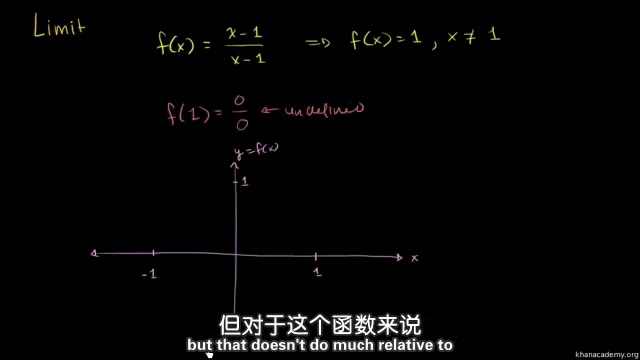 Limit
f(x) = x-1 / x-1 ⇒ f(x) = 1 , x ≠ 1
f(1) = 0 / 0 ← undefined
y = f(x)
1
x
-1 1
但对于这个函数来说
but that doesn't do much relative to
khanacademy.org